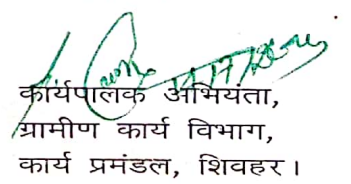 कार्यपालक अभियंता,
ग्रामीण कार्य विभाग,
कार्य प्रमंडल, शिवहर।